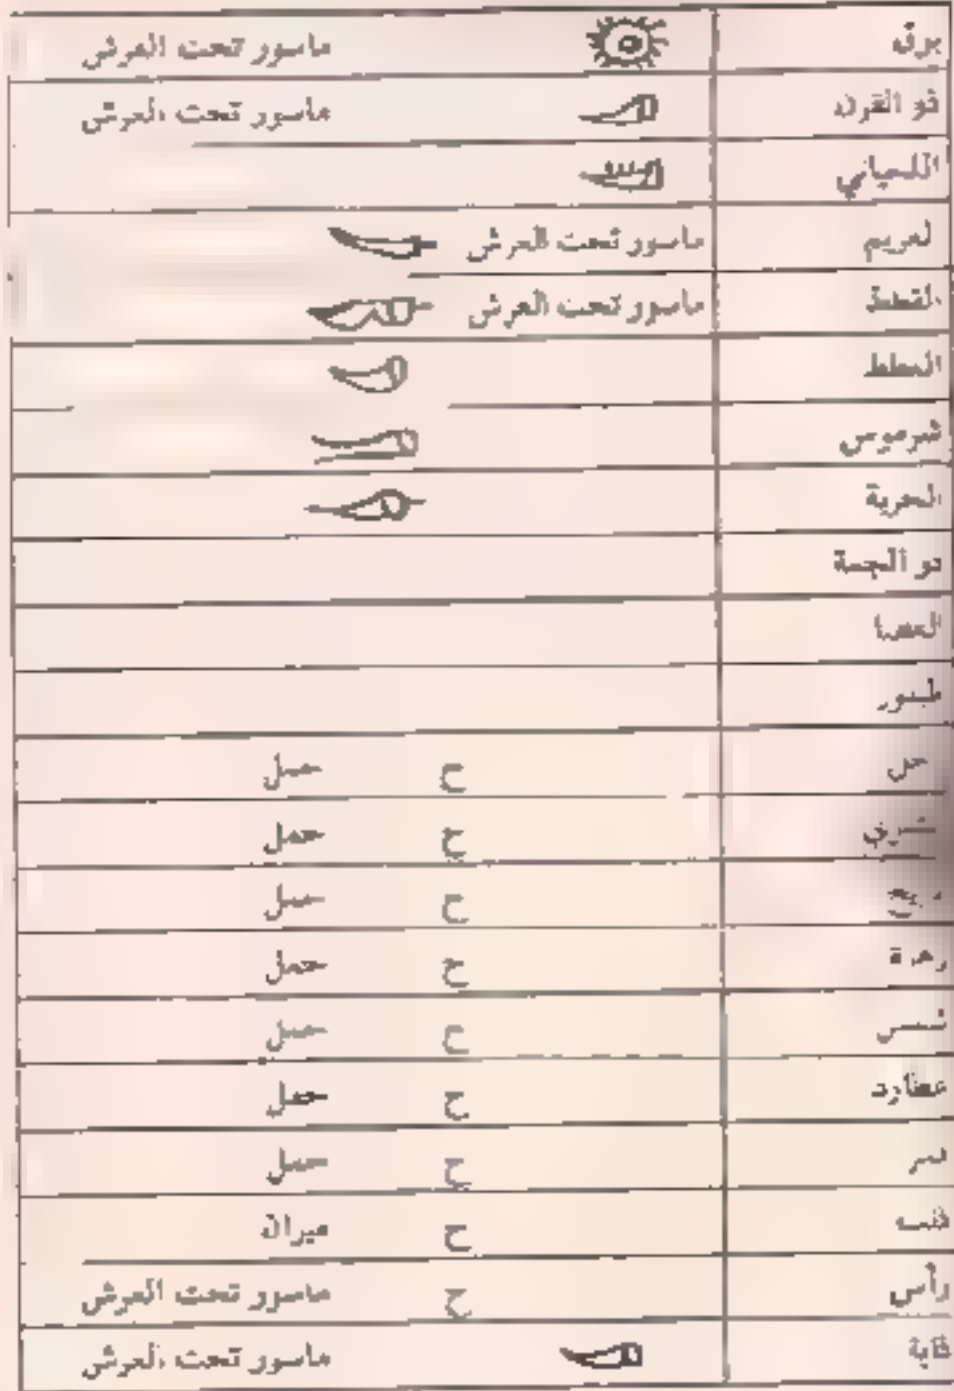 برق ماسور تحت العرش
ذو القرن ماسور تحت العرش
اللحياني
الغريم ماسور تحت العرش
القطط ماسور تحت العرش
شرموس
الحربة
ذو الجمة
العصا
طيفور
ح حمل
ح حمل
ح حمل
زهرة ح حمل
شمس ح حمل
عطارد ح حمل
ح حمل
ذنب ح ميزان
رأس ح ماسور تحت العرش
ماسور تحت العرش